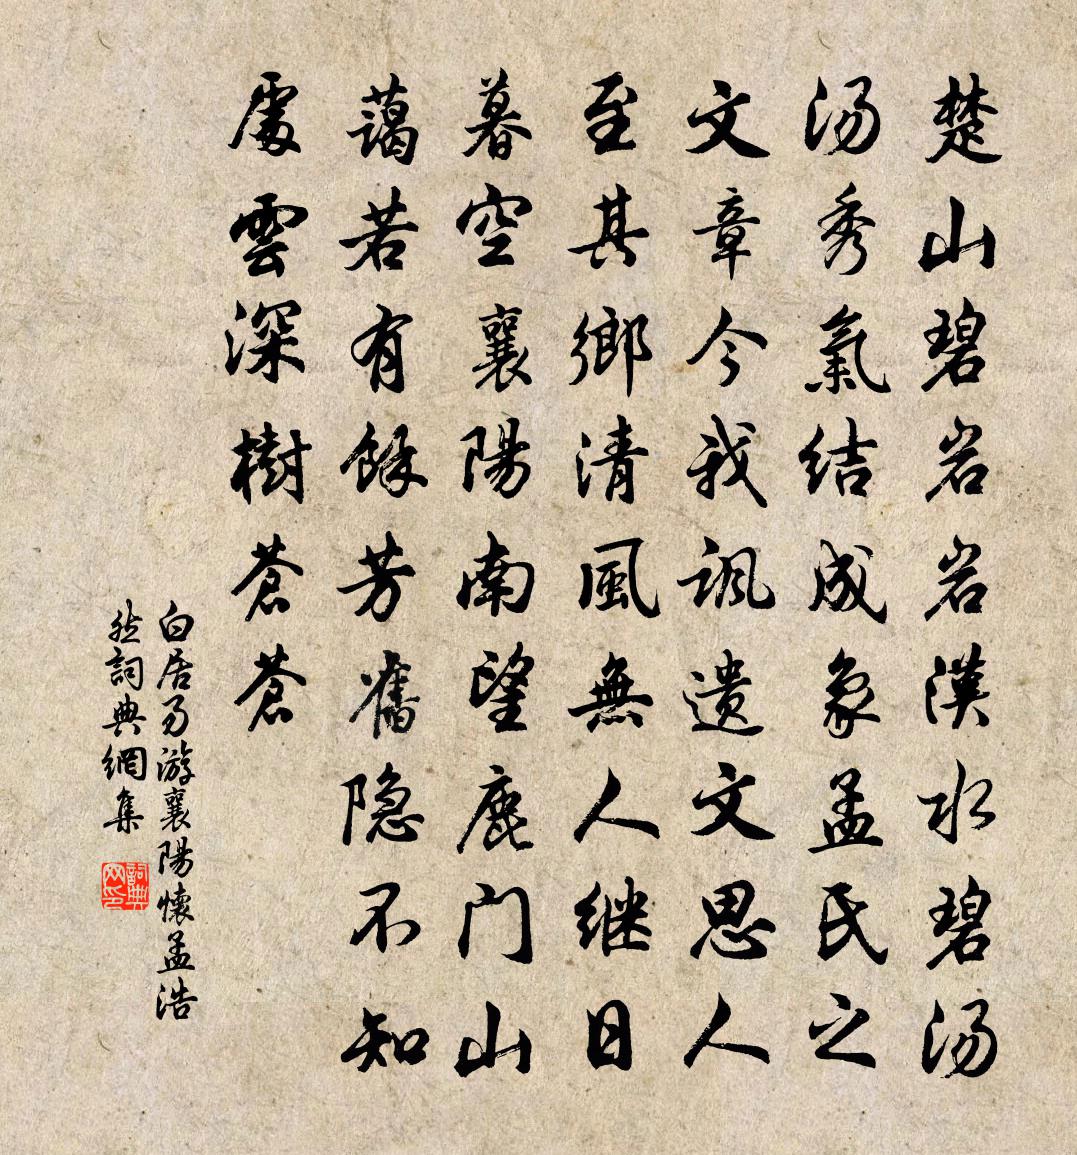 楚山碧岩岩漢水碧湯
湯秀氣結成象孟氏之
文章今我諷遺文思人
至其鄉清風無人继日
暮空襄陽南望鹿门山
藹若有餘芳舊隐不知
處雲深樹蒼蒼
白居易游襄陽懷孟浩
然詞典網集
詞典网印